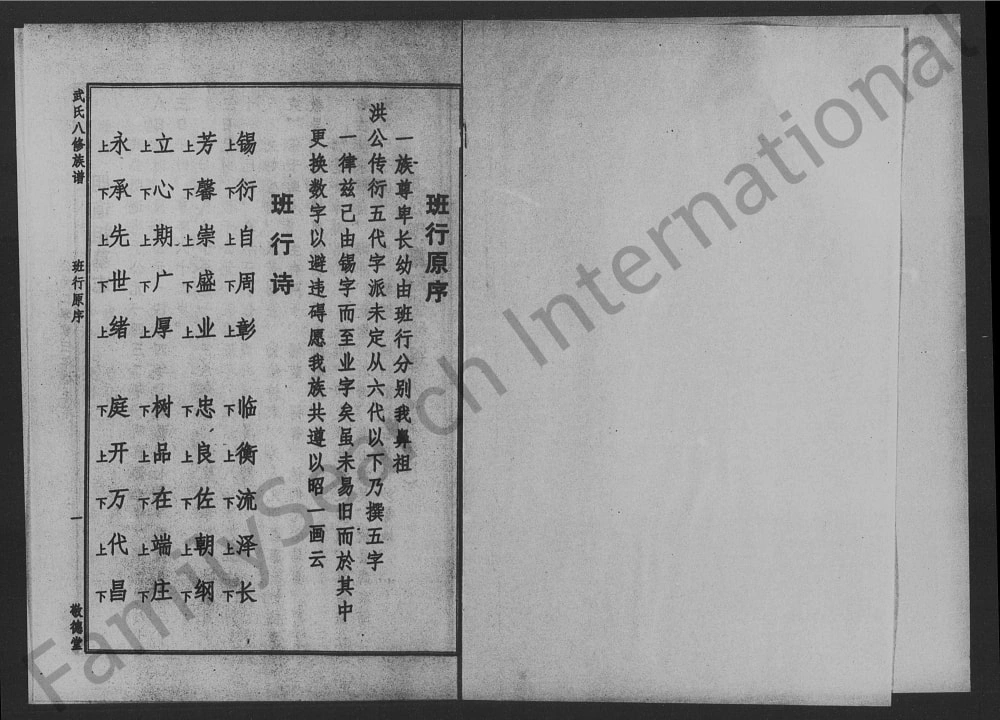 班行原序
一族尊卑长幼由班行分别我鼻祖
洪公传衍五代字派未定从六代以下乃撰五字
一律兹己由锡字而至业字矣虽未易旧而於其中
更换数字以避违碍愿我族共遵以昭一画云
班行诗
上锡下衍上自下周上彰 下临上衡下流上泽下长
上芳下馨上崇下盛上业 下忠上良下佐上朝下纲
上立下心上期下广上厚 下树上品下在上端下庄
上永下承上先下世上绪 下庭上开下万上代下昌
武氏八修族谱 班行原序 一 敬德堂
FamilySearch International